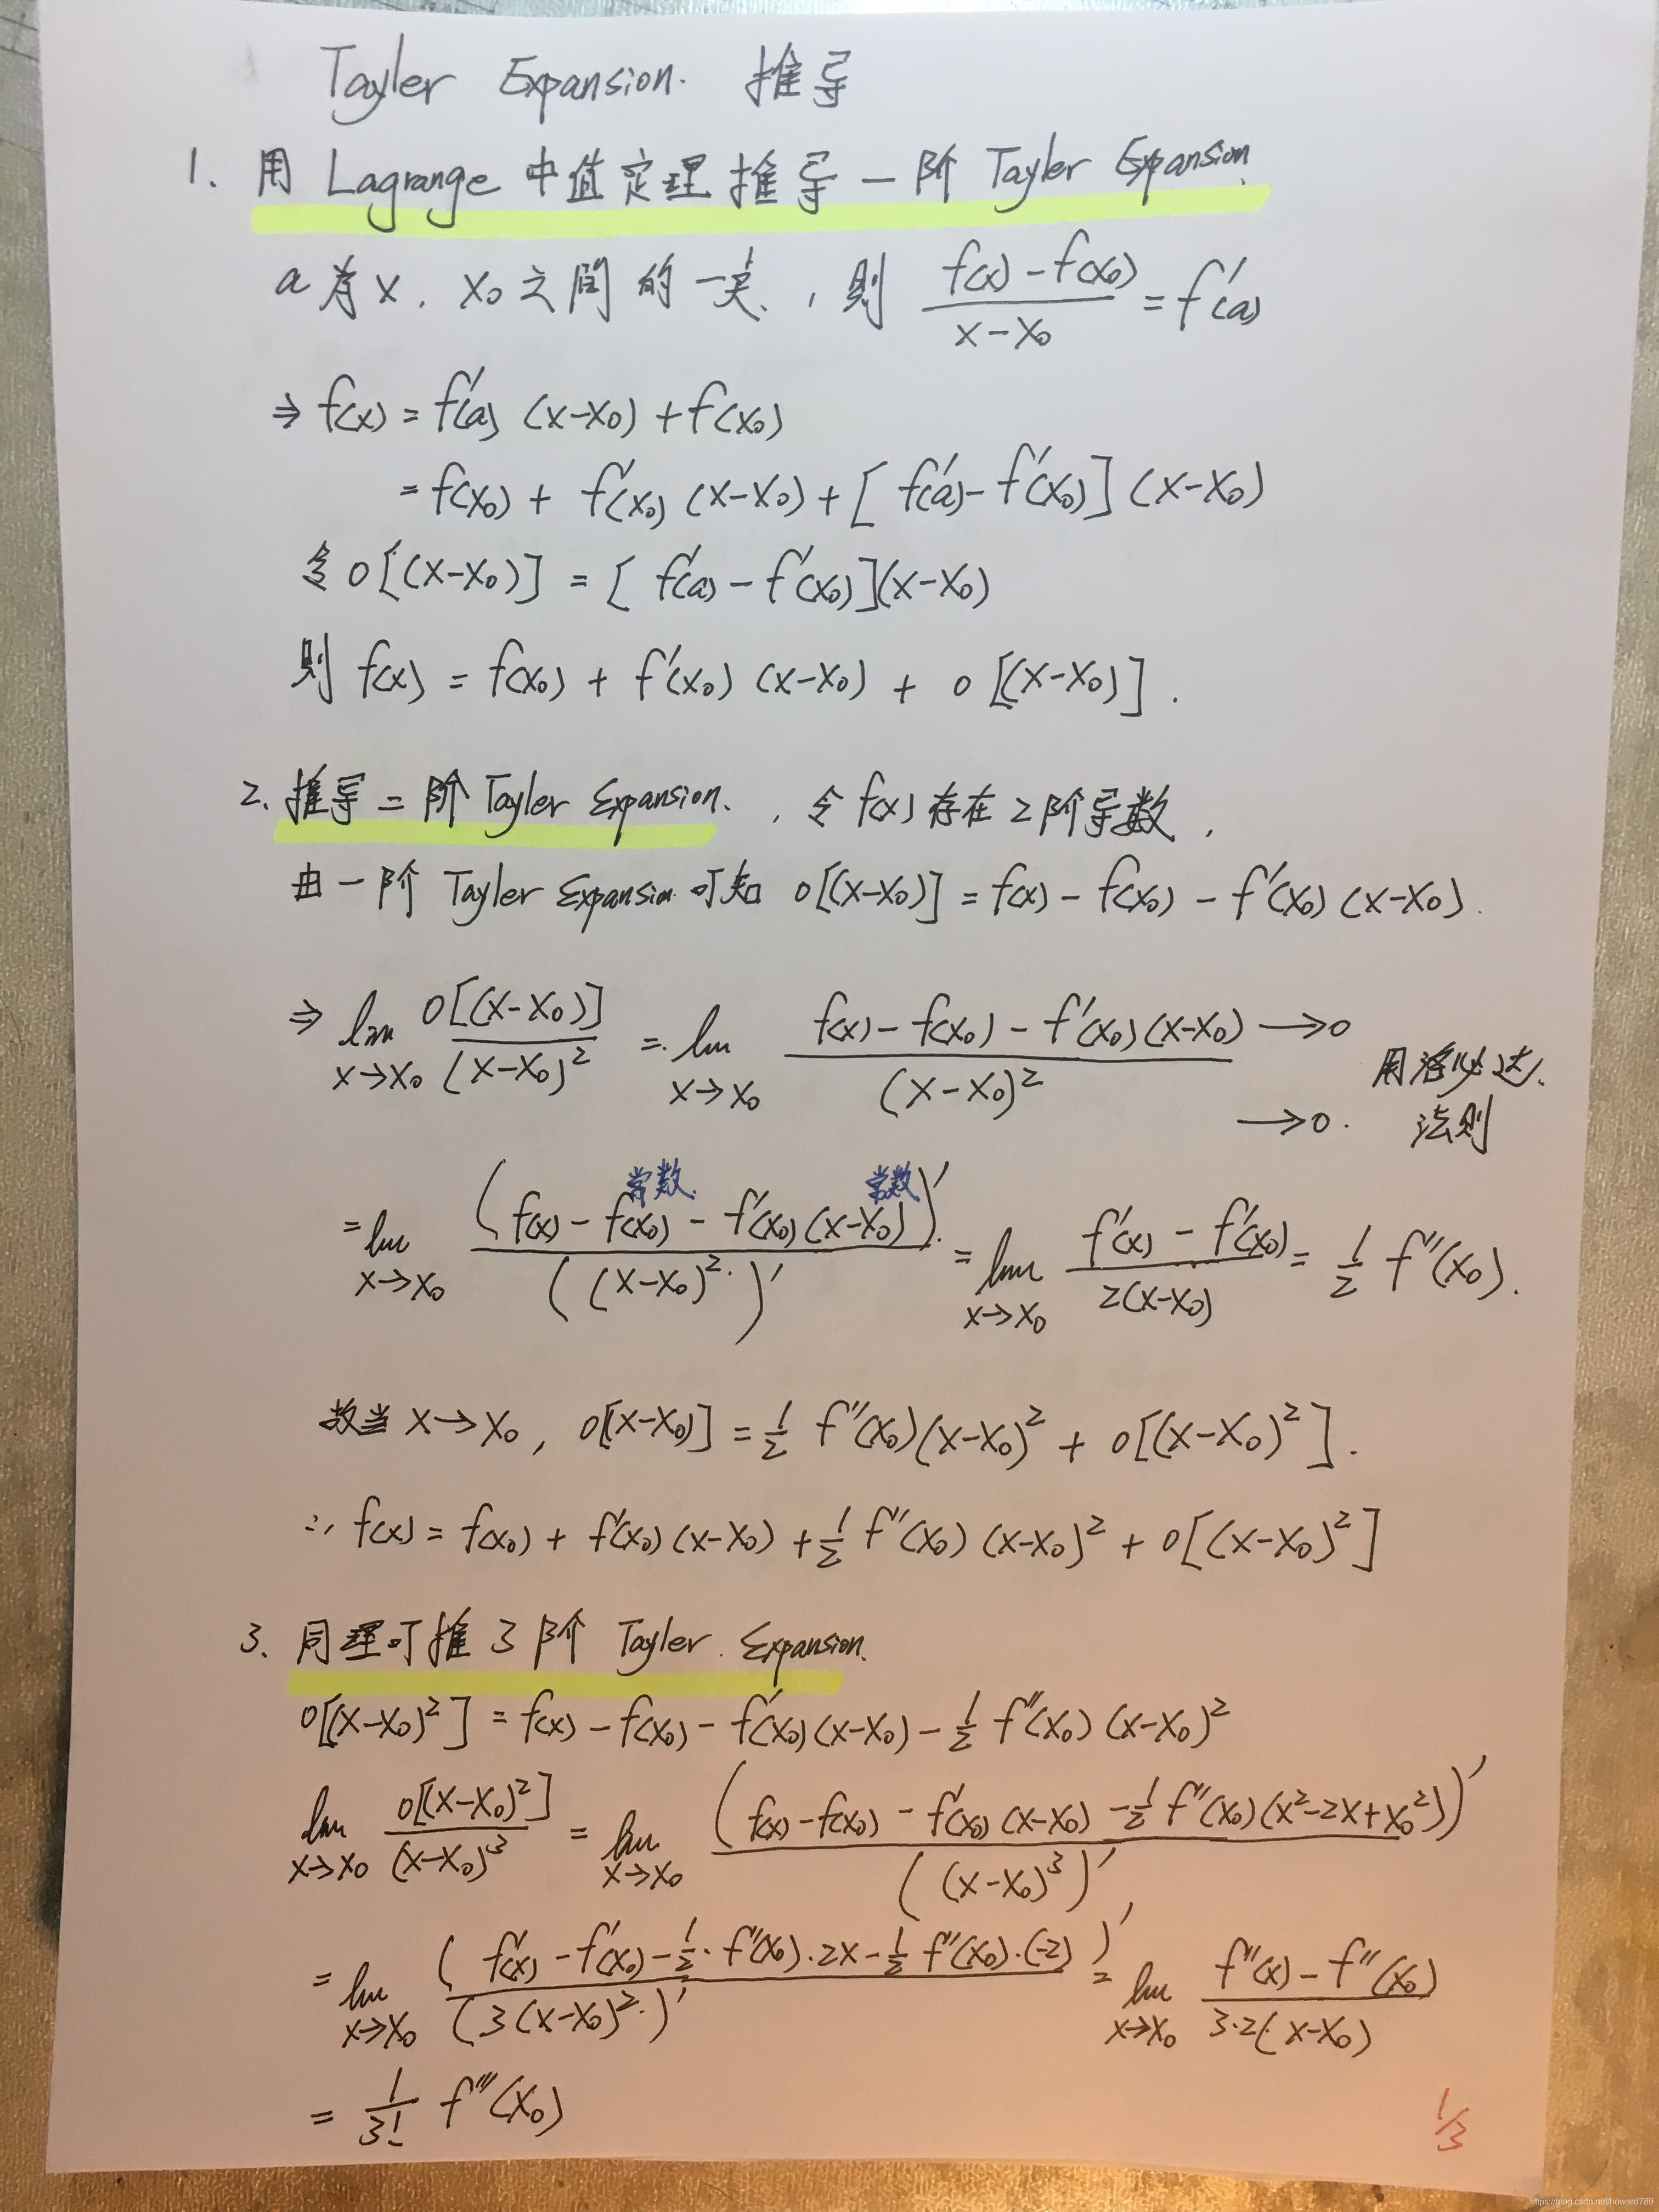 Tayler Expansion. 推导
1. 用 Lagrange 中值定理推导一阶 Tayler Expansion.
a为x, x₀之间的一点, 则 (f(x)-f(x₀))/(x-x₀) = f'(a)
⇒ f(x) = f'(a) (x-x₀) + f(x₀)
= f(x₀) + f'(x₀) (x-x₀) + [f'(a)-f'(x₀)] (x-x₀)
令 o[(x-x₀)] = [f'(a) - f'(x₀)](x-x₀)
则 f(x) = f(x₀) + f'(x₀) (x-x₀) + o[(x-x₀)].
2. 推导二阶 Tayler Expansion. , 令 f(x) 存在2阶导数,
由一阶 Tayler Expansion 可知 o[(x-x₀)] = f(x) - f(x₀) - f'(x₀) (x-x₀).
⇒ lim x→x₀ o[(x-x₀)]/(x-x₀)² = lim x→x₀ (f(x) - f(x₀) - f'(x₀)(x-x₀))/(x-x₀)² →0 →0. 用洛必达法则
常数. 常数
= lim x→x₀ (f(x) - f(x₀) - f'(x₀)(x-x₀))'/((x-x₀)²)' = lim x→x₀ (f'(x) - f'(x₀))/2(x-x₀) = 1/2 f''(x₀).
故当 x→x₀, o[x-x₀] = 1/2 f''(x₀)(x-x₀)² + o[(x-x₀)²].
∴ f(x) = f(x₀) + f'(x₀)(x-x₀) + 1/2 f''(x₀) (x-x₀)² + o[(x-x₀)²]
3. 同理可推3阶 Tayler Expansion.
o[(x-x₀)²] = f(x) - f(x₀) - f'(x₀)(x-x₀) - 1/2 f''(x₀) (x-x₀)²
lim x→x₀ o[(x-x₀)²]/(x-x₀)³ = lim x→x₀ (f(x) - f(x₀) - f'(x₀)(x-x₀) - 1/2 f''(x₀)(x²-2x+x₀²))'/((x-x₀)³)'
= lim x→x₀ (f'(x) - f'(x₀) - 1/2·f''(x₀)·2x - 1/2 f''(x₀)·(-2))'/(3(x-x₀)²)' = lim x→x₀ (f''(x) - f''(x₀))/3·2(x-x₀)
= 1/3! f'''(x₀)
1/3
https://blog.csdn.net/howard789